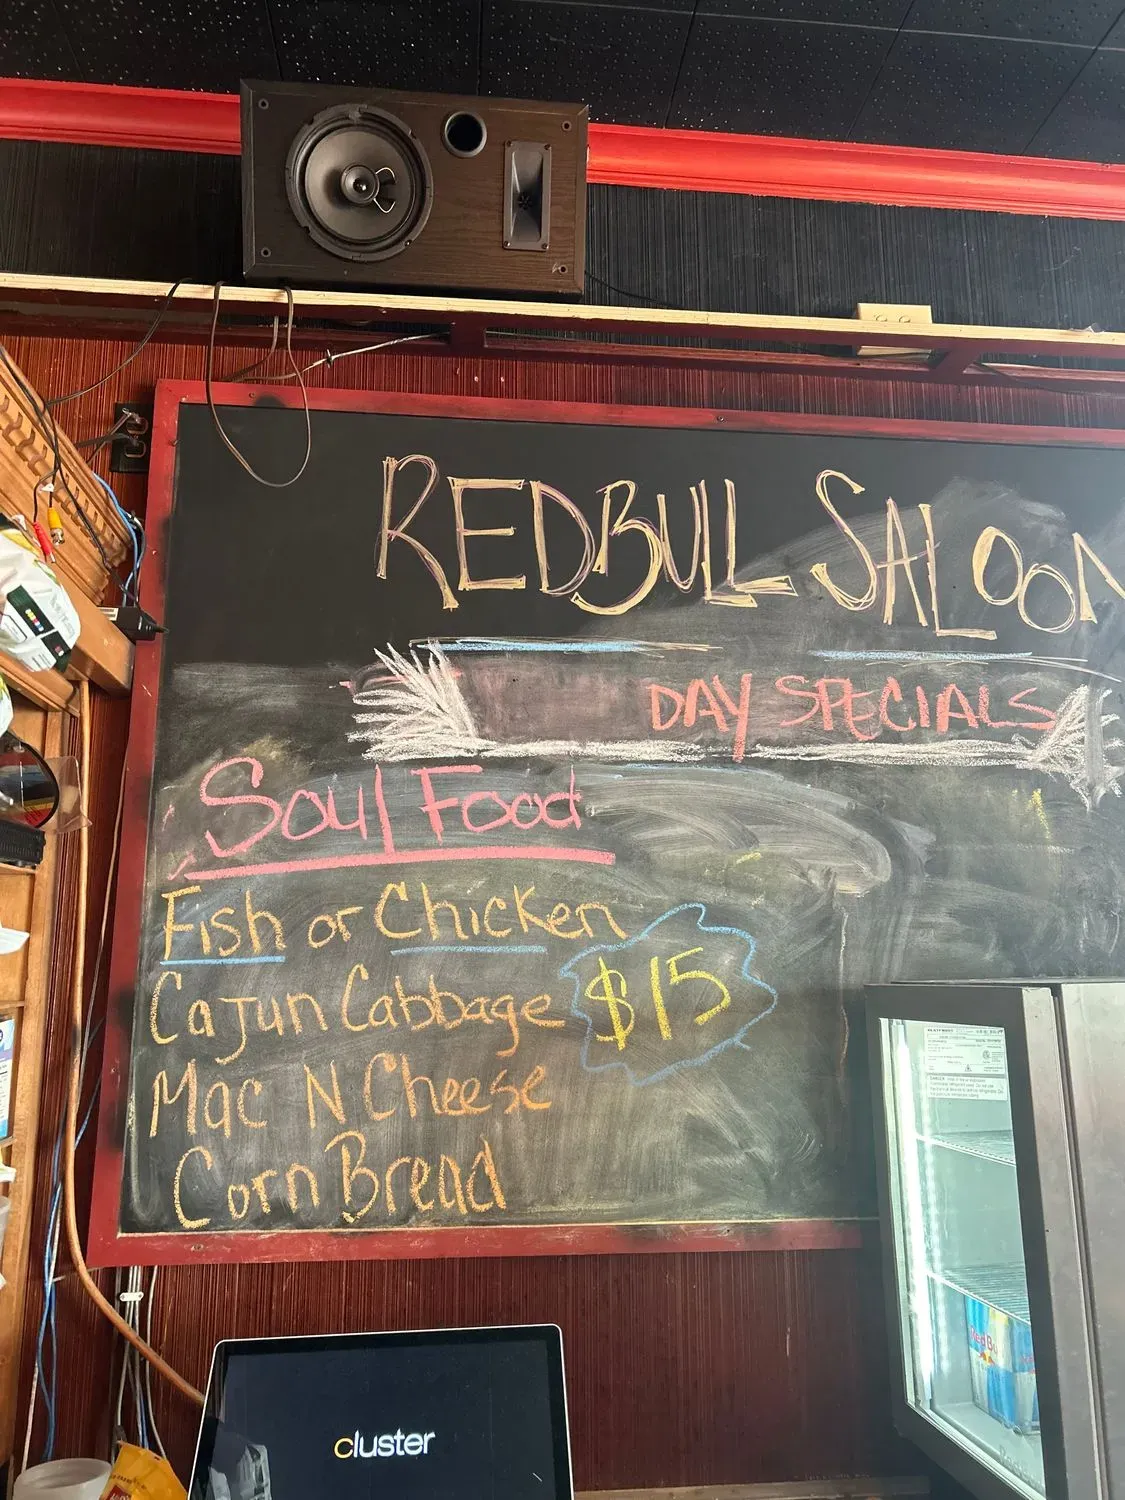 REDBULL SALOON
DAY SPECIALS
Soul Food
Fish or Chicken
$15
Cajun Cabbage
Mac N Cheese
Corn Bread
cluster
Red Bull
DANGER